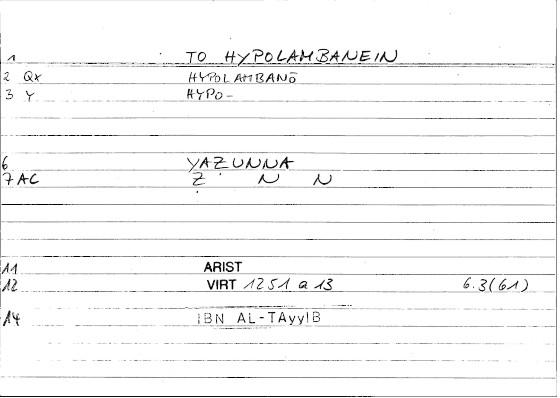 1 TO HYPOLAMBANEIN
2 Qx HYPOLAMBANŌ
3 Y HYPO-
6 YAẒUNNA
7 AC Ẓ N N
A1 ARIST
A2 VIRT 1251 a 13 6.3(61)
A4 IBN AL-TAyyIB